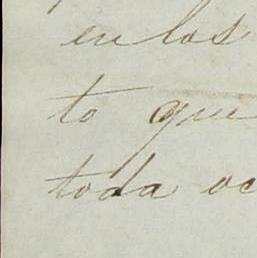 en los
to que
toda oc